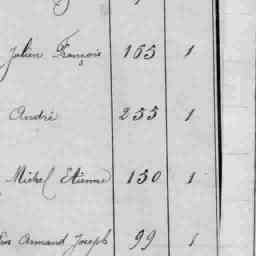 Julien François 165 1
André 255 1
Michel Etienne 150 1
Armand Joseph 99 1